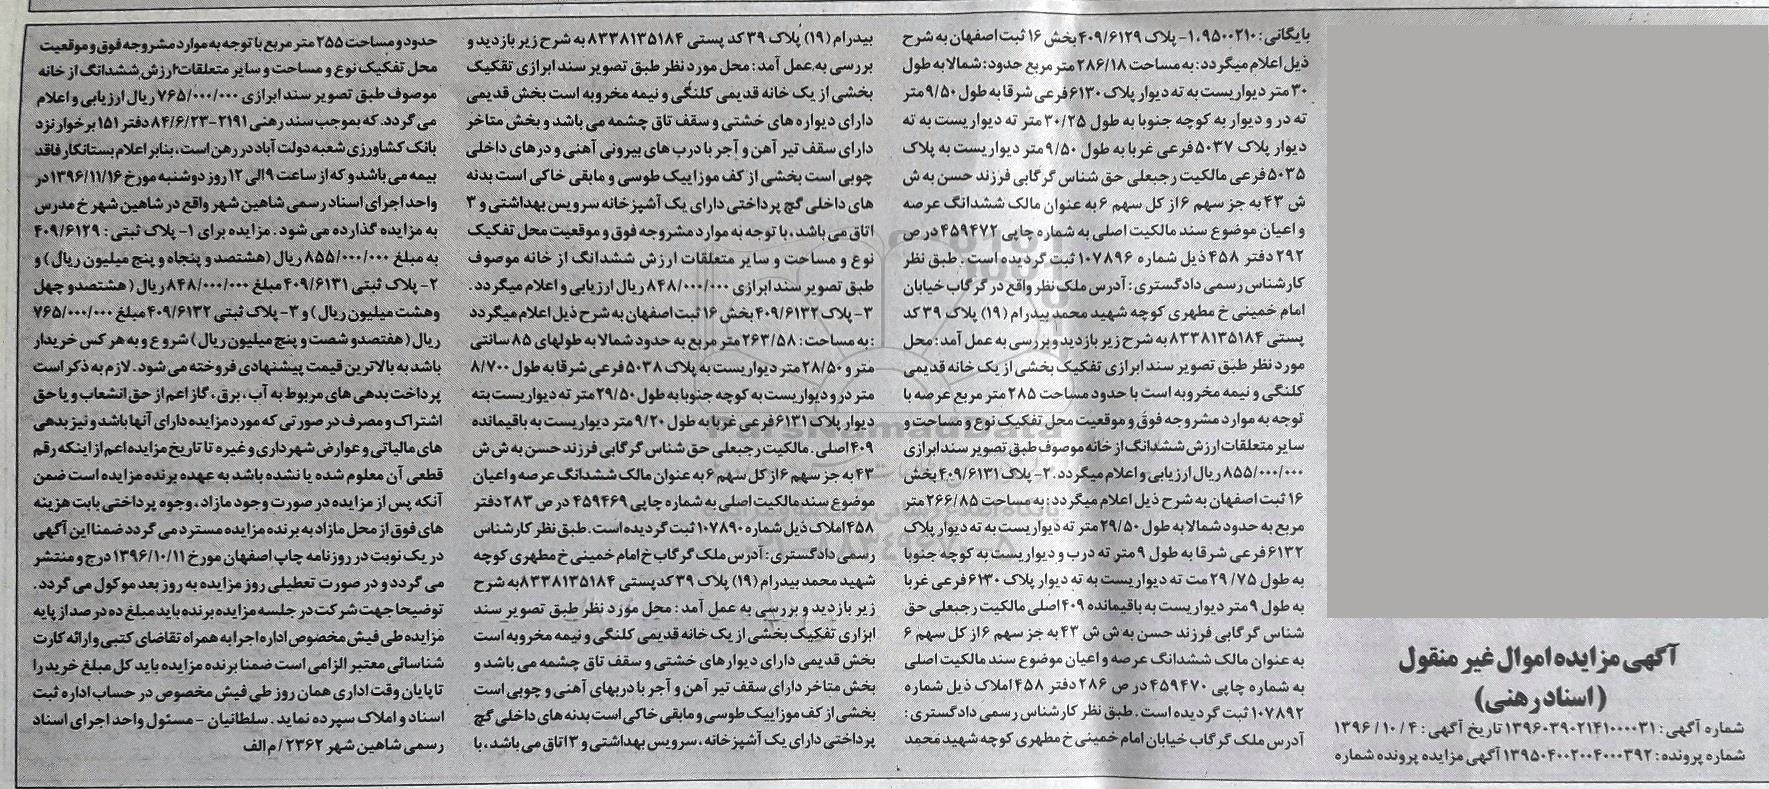 آگهی مزایده اموال غیر منقول
(اسناد رهنی)
شماره آگهی: ۱۳۹۶۰۳۹۰۲۱۴۱۰۰۰۰۳۱ تاریخ آگهی: ۱۳۹۶/۱۰/۴
شماره پرونده: ۱۳۹۵۰۴۰۰۲۰۰۴۰۰۰۳۹۲ آگهی مزایده پرونده شماره
بایگانی: ۹۵۰۰۲۱۰. ۱- پلاک ۴۰۹/۶۱۲۹ بخش ۱۶ ثبت اصفهان به شرح
ذیل اعلام میگردد: به مساحت ۲۸۶/۱۸ متر مربع حدود: شمالا به طول
۳۰ متر دیواریست به ته دیوار پلاک ۶۱۳۰ فرعی شرقا به طول ۹/۵۰ متر
ته در و دیوار به کوچه جنوبا به طول ۳۰/۲۵ متر ته دیواریست به ته
دیوار پلاک ۵۰۳۷ فرعی غربا به طول ۹/۵۰ متر دیواریست به پلاک
۵۰۳۵ فرعی مالکیت رجبعلی حق شناس گرگابی فرزند حسن به ش
ش ۴۳ به جز سهم ۶ از کل سهم ۶ به عنوان مالک ششدانگ عرصه
و اعیان موضوع سند مالکیت اصلی به شماره چاپی ۴۵۹۴۷۲ در ص
۲۹۲ دفتر ۴۵۸ ذیل شماره ۱۰۷۸۹۶ ثبت گردیده است. طبق نظر
کارشناس رسمی دادگستری: آدرس ملک نظر واقع در گرگاب خیابان
امام خمینی خ مطهری کوچه شهید محمد بیدرام (۱۹) پلاک ۳۹ کد
پستی ۸۳۳۸۱۳۵۱۸۴ به شرح زیر بازدید و بررسی به عمل آمد: محل
مورد نظر طبق تصویر سند ابرازی تفکیک بخشی از یک خانه قدیمی
کلنگی و نیمه مخروبه است با حدود مساحت ۲۸۵ متر مربع عرصه با
توجه به موارد مشروحه فوق و موقعیت محل تفکیک نوع و مساحت و
سایر متعلقات ارزش ششدانگ از خانه موصوف طبق تصویر سند ابرازی
۸۵۵/۰۰۰/۰۰۰ ریال ارزیابی و اعلام میگردد. ۲- پلاک ۴۰۹/۶۱۳۱ بخش
۱۶ ثبت اصفهان به شرح ذیل اعلام میگردد: به مساحت ۲۶۶/۸۵ متر
مربع به حدود شمالا به طول ۲۹/۵۰ متر ته دیواریست به ته دیوار پلاک
۶۱۳۲ فرعی شرقا به طول ۹ متر ته درب و دیواریست به کوچه جنوبا
به طول ۲۹/۷۵ مت ته دیواریست به ته دیوار پلاک ۶۱۳۰ فرعی غربا
به طول ۹ متر دیواریست به باقیمانده ۴۰۹ اصلی مالکیت رجبعلی حق
شناس گرگابی فرزند حسن به ش ش ۴۳ به جز سهم ۶ از کل سهم ۶
به عنوان مالک ششدانگ عرصه و اعیان موضوع سند مالکیت اصلی
به شماره چاپی ۴۵۹۴۷۰ در ص ۲۸۶ دفتر ۴۵۸ املاک ذیل شماره
۱۰۷۸۹۲ ثبت گردیده است. طبق نظر کارشناس رسمی دادگستری:
آدرس ملک گرگاب خیابان امام خمینی خ مطهری کوچه شهید محمد
بیدرام (۱۹) پلاک ۳۹ کد پستی ۸۳۳۸۱۳۵۱۸۴ به شرح زیر بازدید و
بررسی به عمل آمد: محل مورد نظر طبق تصویر سند ابرازی تفکیک
بخشی از یک خانه قدیمی کلنگی و نیمه مخروبه است بخش قدیمی
دارای دیواره های خشتی و سقف تاق چشمه می باشد و بخش متاخر
دارای سقف تیر آهن و آجر با درب های بیرونی آهنی و درهای داخلی
چوبی است بخشی از کف موزاییک طوسی و مابقی خاکی است بدنه
های داخلی گچ پرداختی دارای یک آشپزخانه سرویس بهداشتی و ۳
اتاق می باشد، با توجه به موارد مشروحه فوق و موقعیت محل تفکیک
نوع و مساحت و سایر متعلقات ارزش ششدانگ از خانه موصوف
طبق تصویر سند ابرازی ۸۴۸/۰۰۰/۰۰۰ ریال ارزیابی و اعلام میگردد.
۳- پلاک ۴۰۹/۶۱۳۲ بخش ۱۶ ثبت اصفهان به شرح ذیل اعلام میگردد
: به مساحت: ۲۶۳/۵۸ متر مربع به حدود شمالا به طولهای ۸۵ سانتی
متر و ۲۸/۵۰ متر دیواریست به پلاک ۵۰۳۸ فرعی شرقا به طول ۸/۷۰۰
متر در و دیواریست به کوچه جنوبا به طول ۲۹/۵۰ متر ته دیواریست بته
دیوار پلاک ۶۱۳۱ فرعی غربا به طول ۹/۲۰ متر دیواریست به باقیمانده
۴۰۹ اصلی. مالکیت رجبعلی حق شناس گرگابی فرزند حسن به ش ش
۴۳ به جز سهم ۶ از کل سهم ۶ به عنوان مالک ششدانگ عرصه و اعیان
موضوع سند مالکیت اصلی به شماره چاپی ۴۵۹۴۶۹ در ص ۲۸۳ دفتر
۴۵۸ املاک ذیل شماره ۱۰۷۸۹۰ ثبت گردیده است. طبق نظر کارشناس
رسمی دادگستری: آدرس ملک گرگاب خ امام خمینی خ مطهری کوچه
شهید محمد بیدرام (۱۹) پلاک ۳۹ کدپستی ۸۳۳۸۱۳۵۱۸۴ به شرح
زیر بازدید و بررسی به عمل آمد: محل مورد نظر طبق تصویر سند
ابزاری تفکیک بخشی از یک خانه قدیمی کلنگی و نیمه مخروبه است
بخش قدیمی دارای دیوارهای خشتی و سقف تاق چشمه می باشد و
بخش متاخر دارای سقف تیر آهن و آجر با دربهای آهنی و چوبی است
بخشی از کف موزاییک طوسی و مابقی خاکی است بدنه های داخلی گچ
پرداختی دارای یک آشپزخانه، سرویس بهداشتی و ۳ اتاق می باشد، با
حدود و مساحت ۲۵۵ متر مربع با توجه به موارد مشروحه فوق و موقعیت
محل تفکیک نوع و مساحت و سایر متعلقات ارزش ششدانگ از خانه
موصوف طبق تصویر سند ابرازی ۷۶۵/۰۰۰/۰۰۰ ریال ارزیابی و اعلام
می گردد. که بموجب سند رهنی ۲۱۹۱-۸۴/۶/۲۳ دفتر ۱۵۱ برخوار نزد
بانک کشاورزی شعبه دولت آباد در رهن است، بنابر اعلام بستانکار فاقد
بیمه می باشد و که از ساعت ۹ الی ۱۲ روز دوشنبه مورخ ۱۳۹۶/۱۱/۱۶ در
واحد اجرای اسناد رسمی شاهین شهر واقع در شاهین شهر خ مدرس
به مزایده گذارده می شود. مزایده برای ۱- پلاک ثبتی: ۴۰۹/۶۱۲۹
به مبلغ ۸۵۵/۰۰۰/۰۰۰ ریال (هشتصد و پنجاه و پنج میلیون ریال) و
۲- پلاک ثبتی ۴۰۹/۶۱۳۱ مبلغ ۸۴۸/۰۰۰/۰۰۰ ریال (هشتصدو چهل
وهشت میلیون ریال) و ۳- پلاک ثبتی ۴۰۹/۶۱۳۲ مبلغ ۷۶۵/۰۰۰/۰۰۰
ریال (هفتصدو شصت و پنج میلیون ریال) شروع و به هر کس خریدار
باشد به بالاترین قیمت پیشنهادی فروخته می شود. لازم به ذکر است
پرداخت بدهی های مربوط به آب، برق، گاز اعم از حق انشعاب و یا حق
اشتراک و مصرف در صورتی که مورد مزایده دارای آنها باشد و نیز بدهی
های مالیاتی و عوارض شهرداری و غیره تا تاریخ مزایده اعم از اینکه رقم
قطعی آن معلوم شده یا نشده باشد به عهده برنده مزایده است ضمن
آنکه پس از مزایده در صورت وجود مازاد، وجوه پرداختی بابت هزینه
های فوق از محل مازاد به برنده مزایده مسترد می گردد ضمنا این آگهی
در یک نوبت در روزنامه چاپ اصفهان مورخ ۱۳۹۶/۱۰/۱۱ درج و منتشر
می گردد و در صورت تعطیلی روز مزایده به روز بعد موکول می گردد.
توضیحا جهت شرکت در جلسه مزایده برنده باید مبلغ ده در صد از پایه
مزایده طی فیش مخصوص اداره اجرا به همراه تقاضای کتبی و ارائه کارت
شناسائی معتبر الزامی است ضمنا برنده مزایده باید کل مبلغ خرید را
تا پایان وقت اداری همان روز طی فیش مخصوص در حساب اداره ثبت
اسناد و املاک سپرده نماید. سلطانیان - مسئول واحد اجرای اسناد
رسمی شاهین شهر ۲۳۶۲/ م الف